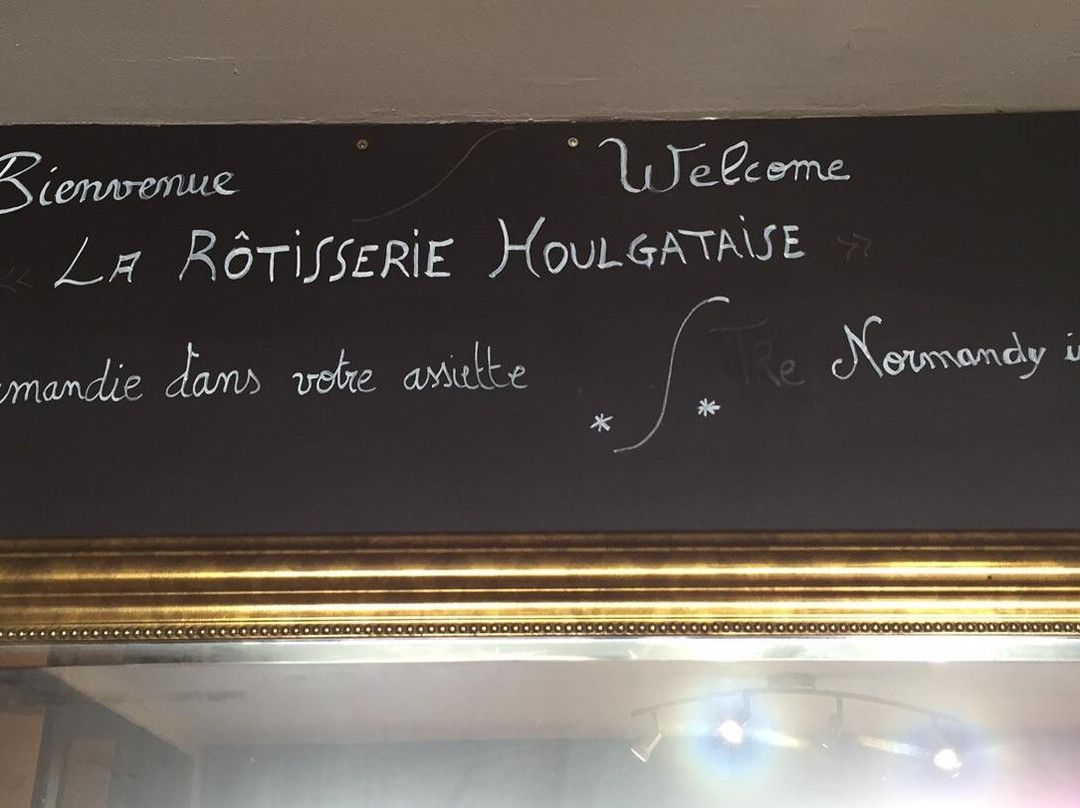 Bienvenue Welcome
« LA RÔTISSERIE HOULGATAISE »
mandie dans votre assiette The Normandy i